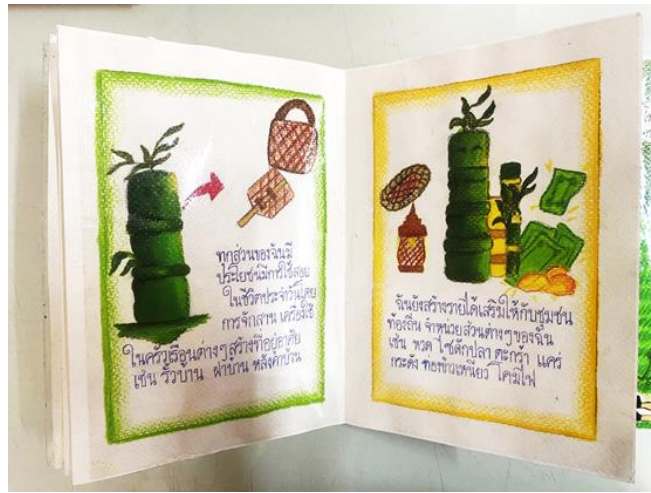 ทุกส่วนของฉันมี
ประโยชน์มีการใช้สอย
ในชีวิตประจำวันโดย
การจักสาน เครื่องใช้
ในครัวเรือนต่างๆสร้างที่อยู่อาศัย
เช่น รั้วบ้าน ฝาบ้าน หลังคาบ้าน
ฉันยังสร้างรายได้เสริมให้กับชุมชน
ท้องถิ่น จำหน่ายส่วนต่างๆของฉัน
เช่น หวด ไซดักปลา ตะกร้า แคร่
กระด้ง กล่องข้าวเหนียว โคมไฟ